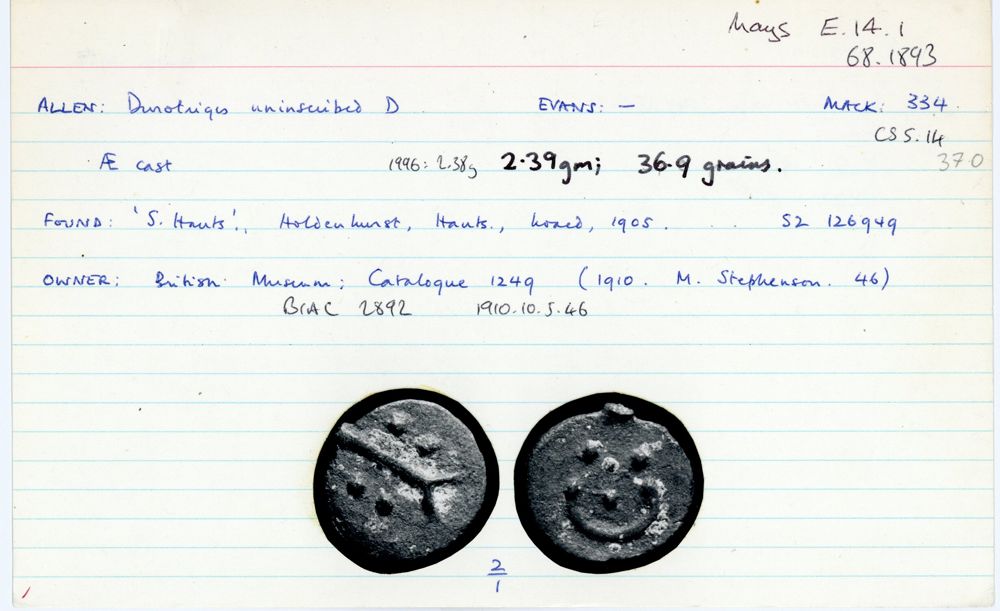 Mays E.14.1
68.1893
ALLEN: Durotriges uninscribed D EVANS: — MACK: 334.
CSS.14
Æ cast 1996: 2.38g 2.39gm; 36.9 grains. 37.0
FOUND: 'S. Hants', Holdenhurst, Hants., hoard, 1905. SZ 126949
OWNER: British Museum; Catalogue 1249 (1910. M. Stephenson. 46)
BIAC 2892 1910.10.5.46
2
1